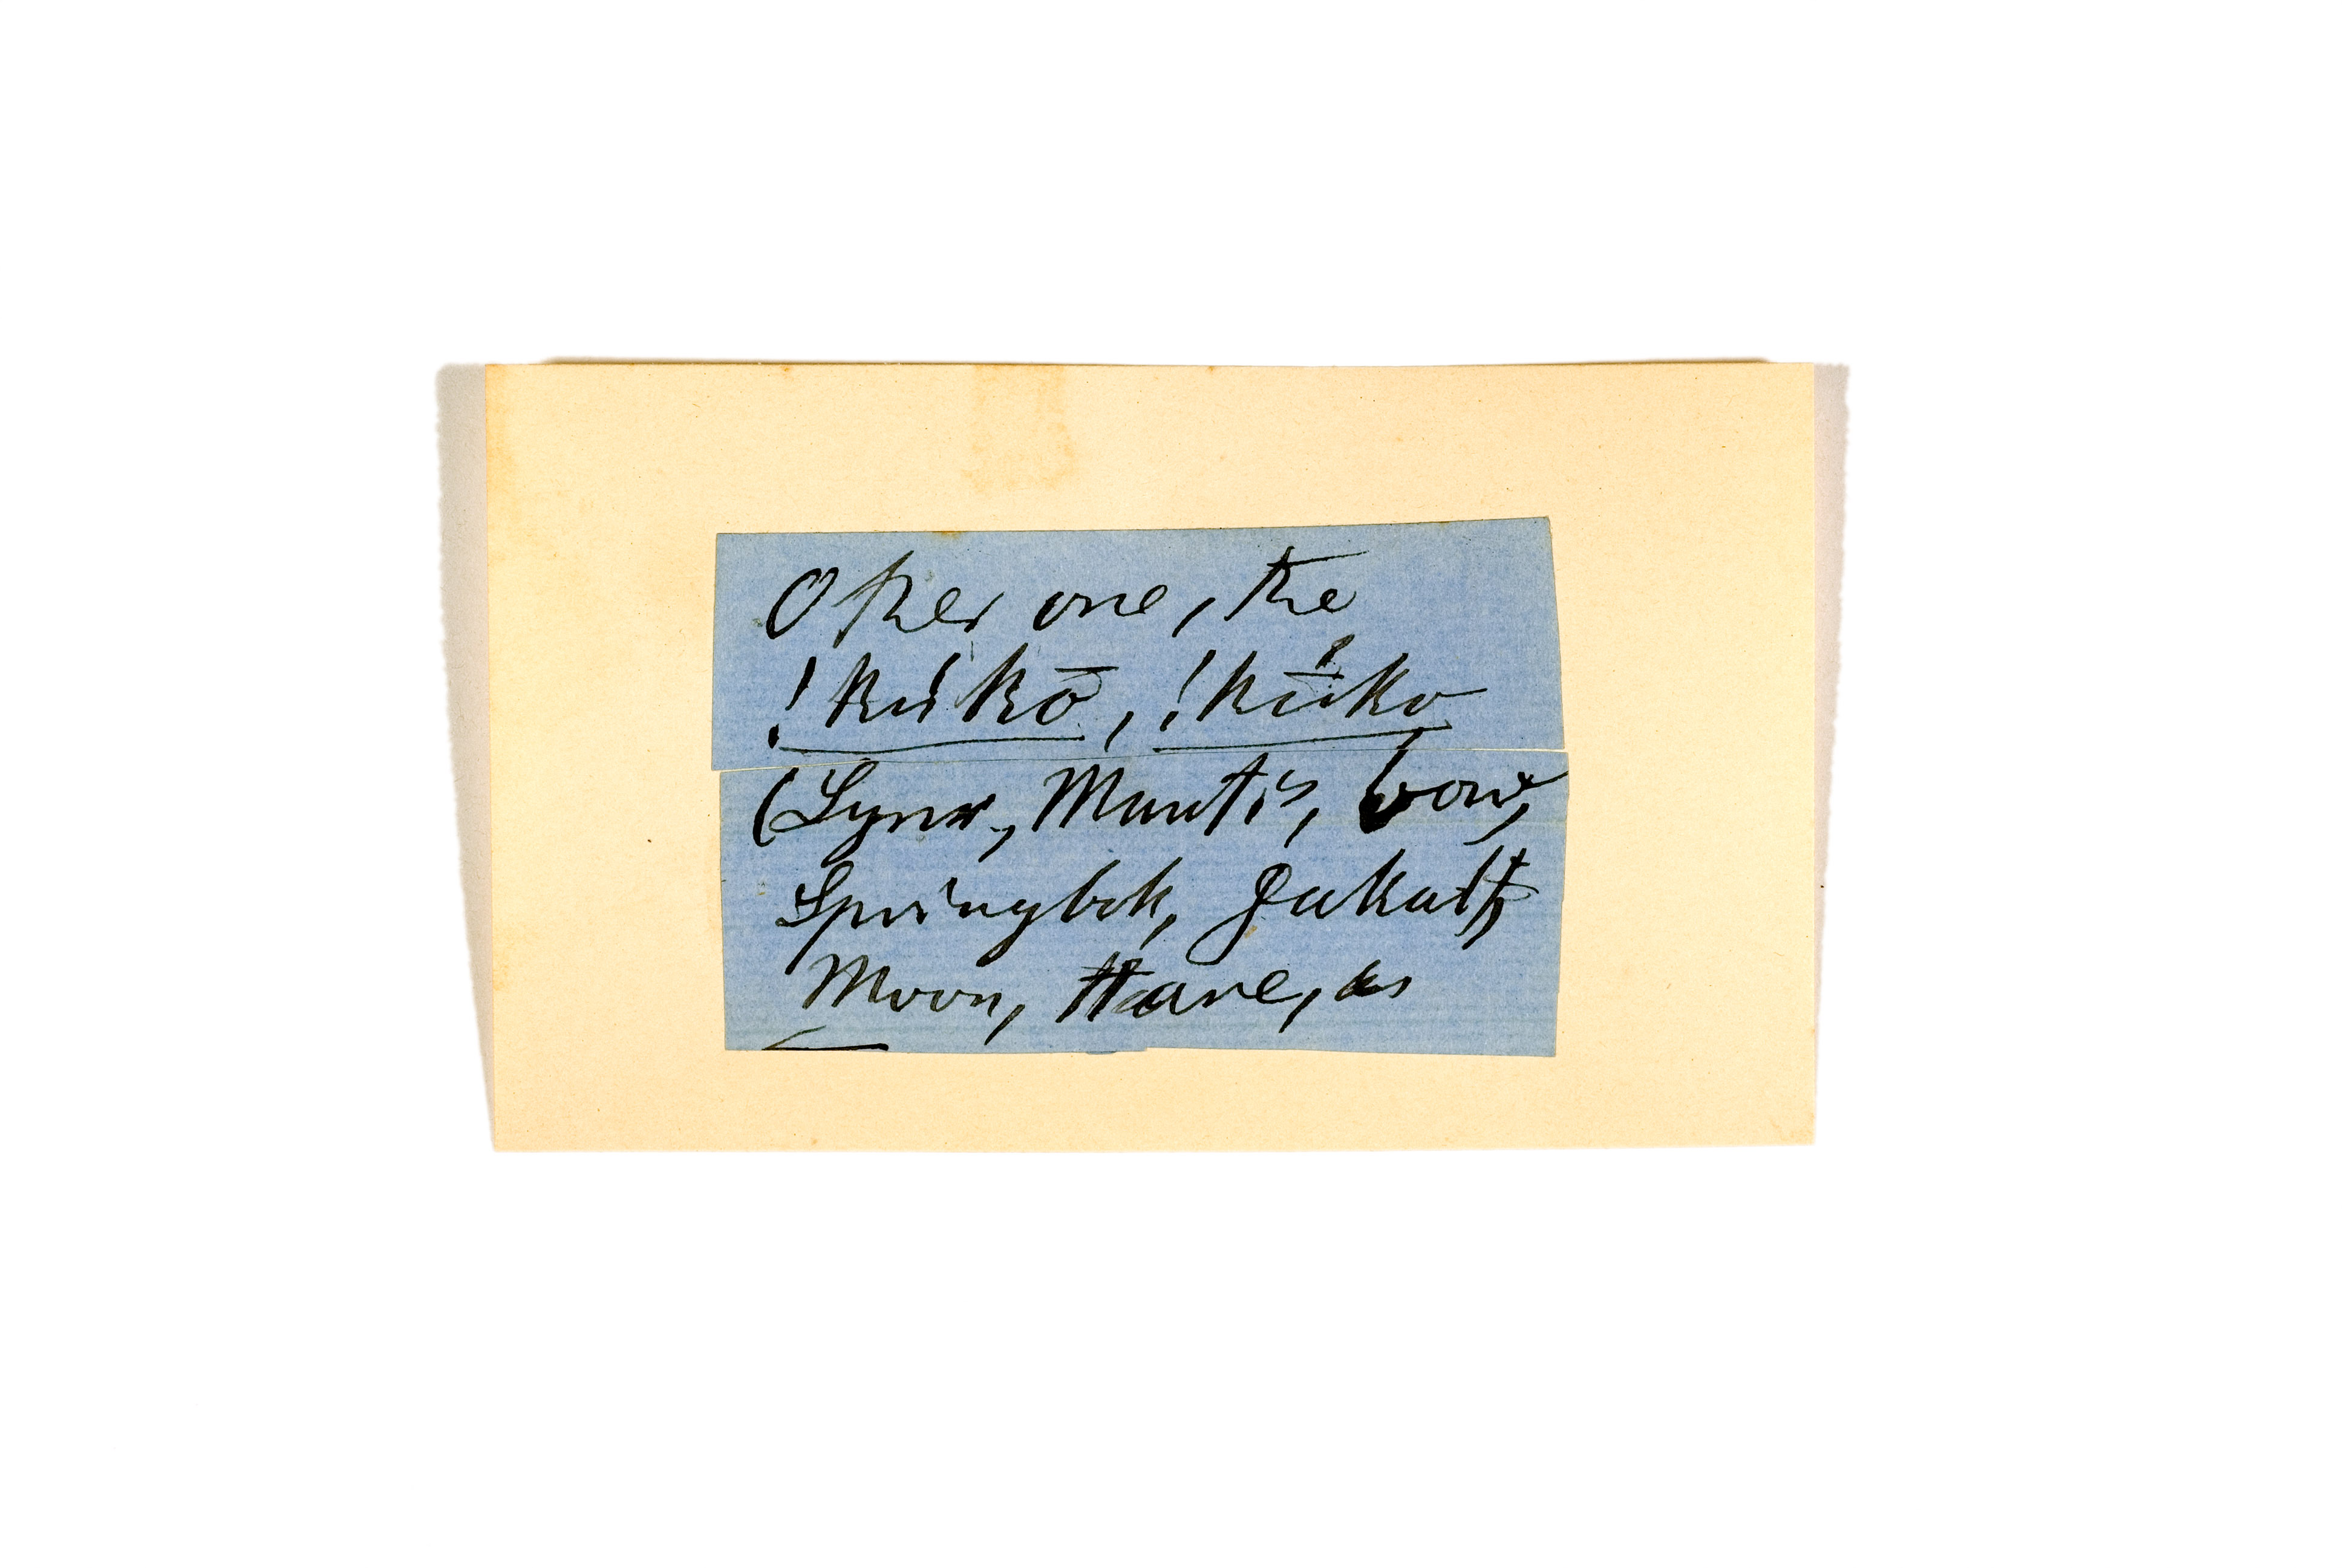 Other one, the
!kúkō, !kū́ko
(Lynx, Mantis,
Springbok, Jakals,
Moon, Hare, as